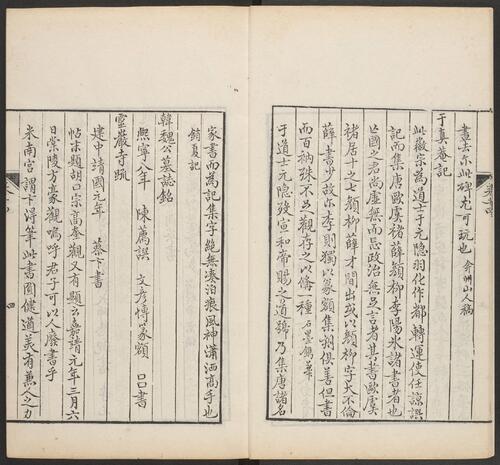 畫去尒此碑尤可玩也 弇州山人稿
于真菴記
此徽宗為道士于元隱羽化作都轉運使任諒譔
記而集唐歐虞褚薛顏柳李陽氷諸書者也
亡國之君尚虛無而忘政治無足言者其書歐虞
褚居十之七顏柳薛才間出或以顏柳字大不倫
薛書少故尒李則獨以篆額集刻俱善但書
而百衲殊不足觀存之以備一種 石墨鐫華
于道士元隱歿宣和帝賜之道號乃集唐諸名
家書而為記集字絶無湊泊痕風神瀟洒高手也
銷夏記
韓魏公墓誌銘
熙寧八年 陳薦譔 文彥愽篆額 口口書
靈巖寺疏
建中靖國元年 蔡卞書
帖末題胡口宗高奎觀又有題云嘉靖元年三月六
日棠陵方豪觀嗚呼君子可以人廢書乎
米南宮謂卞得筆此書圓健遒美有兼人之力